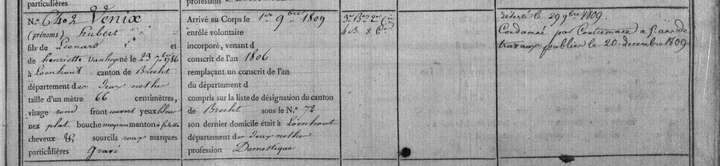 particulières
profession
N.o 6402 Venix
(prénoms) Hubert
fils de Léonard et
de henriette né le 23 7bre 1786
à Léenhout canton de Brecht
département des deux nethes
taille d'un mètre 66 centimètres,
visage rond front yeux bleus
nez plat bouche moyenne menton
cheveux sourcils roux marques
particulières Gravé
Arrivé au Corps le 1er 9bre 1809
enrôlé volontaire
incorporé, venant d
conscrit de l'an 1806
remplaçant un conscrit de l'an
du département d
compris sur la liste de désignation du canton
de Brecht sous le N.o 72
son dernier domicile était à Léenhout
département des deux nethes
profession Domestique
3e Bon 2e Cie
4e B. 2 Cie
déserté le 29 9bre 1809.
Condamné par Contumace a 5 ans de
travaux publics le 20 decembre 1809.